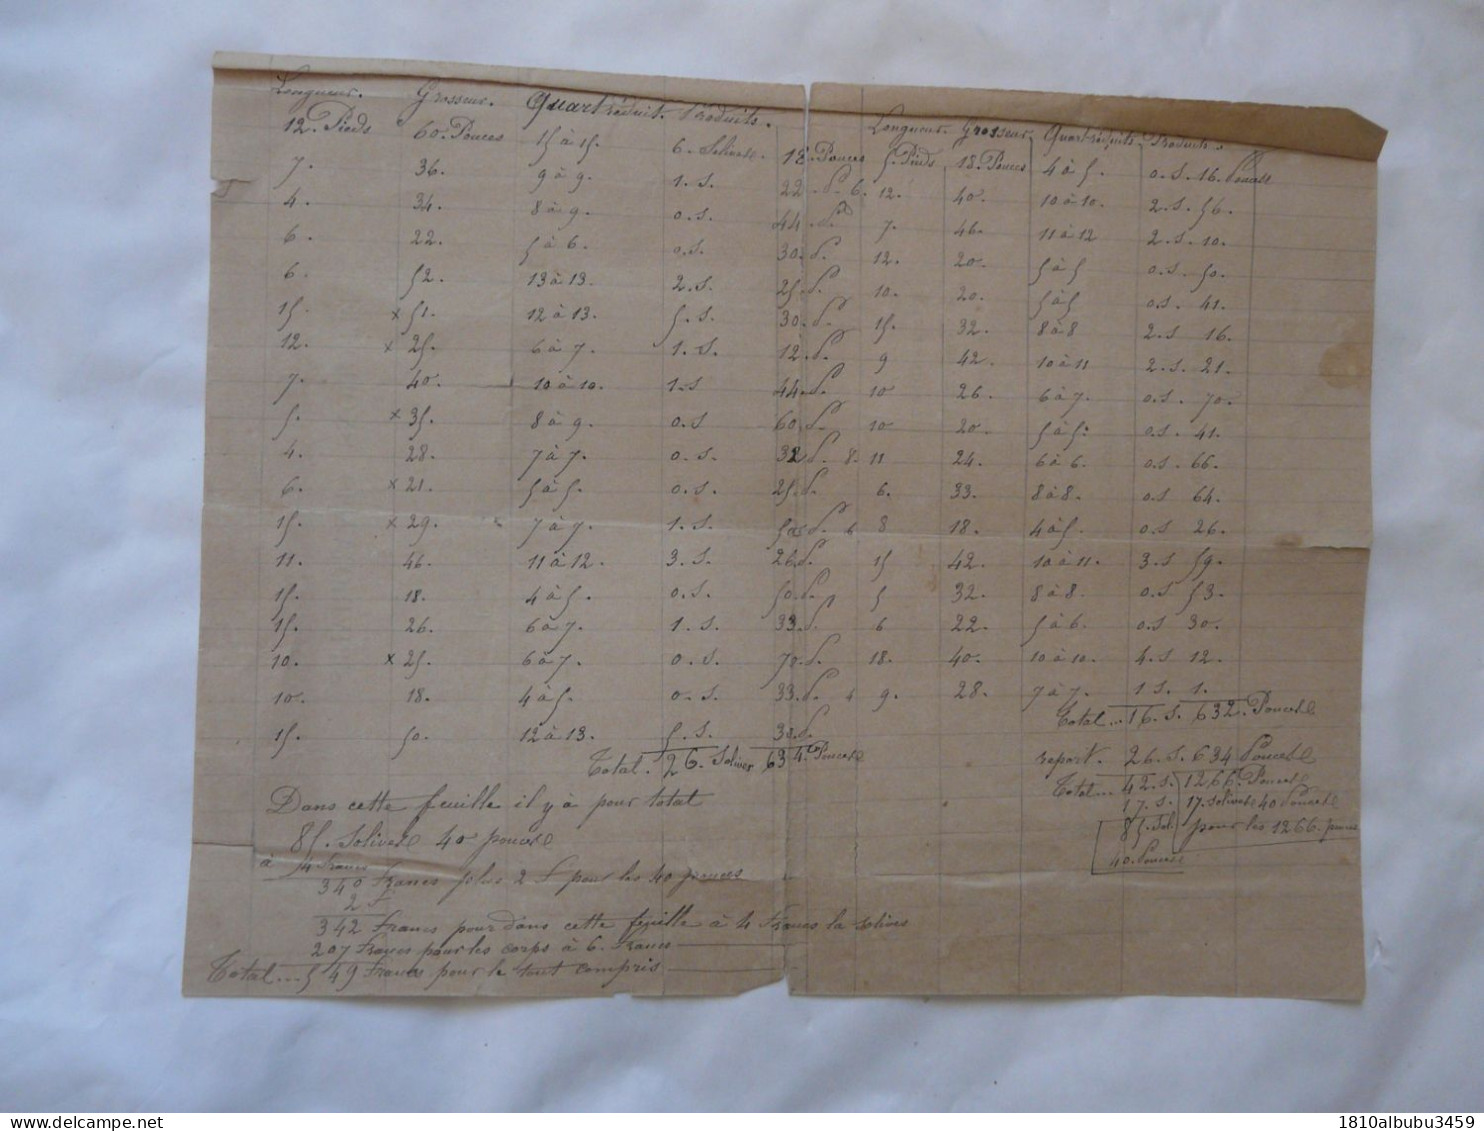 Longueur. Grosseur. Quart réduit. Produits.
12. Pieds 60. Pouces 15 à 15. 6. Solives. 18. Pouces
7. 36. 9 à 9. 1. S. 22. P. 6.
4. 34. 8 à 9. 0. S. 44. P.
6. 22. 5 à 6. 0. S. 30. P.
6. 52. 13 à 13. 2. S. 25. P.
15. x 51. 12 à 13. 5. S. 30. P.
12. x 25. 6 à 7. 1. S. 12. P.
7. 40. 10 à 10. 1. S 44. P.
5. x 35. 8 à 9. 0. S 60. P.
4. 28. 7 à 7. 0. S. 32. P. 8.
6. x 21. 5 à 5. 0. S. 25. P.
15. x 29. 7 à 7. 1. S. 50. P. 6
11. 46. 11 à 12. 3. S. 26. P.
15. 18. 4 à 5. 0. S. 50. P.
15. 26. 6 à 7. 1. S. 33. P.
10. x 25. 6 à 7. 0. S. 70. P.
10. 18. 4 à 5. 0. S. 33. P. 4
15. 50. 12 à 13. 5. S. 30. P.
Total. 26. Solives 634. Pouces
Dans cette feuille il y à pour total
85. Solives 40 pouces
à 4 francs
340 francs plus 2 F pour les 40 pouces
2 F
342 Francs pour dans cette feuille à 4 Francs la solives
207 francs pour les corps à 6. Francs
Total... 549 Francs pour le tout compris
Longueur. Grosseur. Quart réduit. Produits.
5. Pieds 18. Pouces 4 à 5. 0. S. 16. Pouces
12. 40. 10 à 10. 2. S. 56.
7. 46. 11 à 12 2. S. 10.
12. 20. 5 à 5 0. S. 50.
10. 20. 5 à 5 0. S. 41.
15. 32. 8 à 8 2. S 16.
9 42. 10 à 11 2. S. 21.
10 26. 6 à 7. 0. S. 70.
10 20. 5 à 5. 0. S. 41.
11 24. 6 à 6. 0. S. 66.
6. 33. 8 à 8. 0. S 64.
8 18. 4 à 5. 0. S 26.
15 42. 10 à 11. 3. S 59.
5 32. 8 à 8. 0. S 53.
6 22. 5 à 6. 0. S 30.
18. 40. 10 à 10. 4. S 12.
9. 28. 7 à 7. 1 S. 1.
Total... 16. S. 632. Pouces
report. 26. S. 634 Pouces
Total... 42. S. 1266. Pouces
17. S. 17. solives 40 Pouces
85. Sol. pour les 1266. pouces
40. Pouces
1810albubu3459